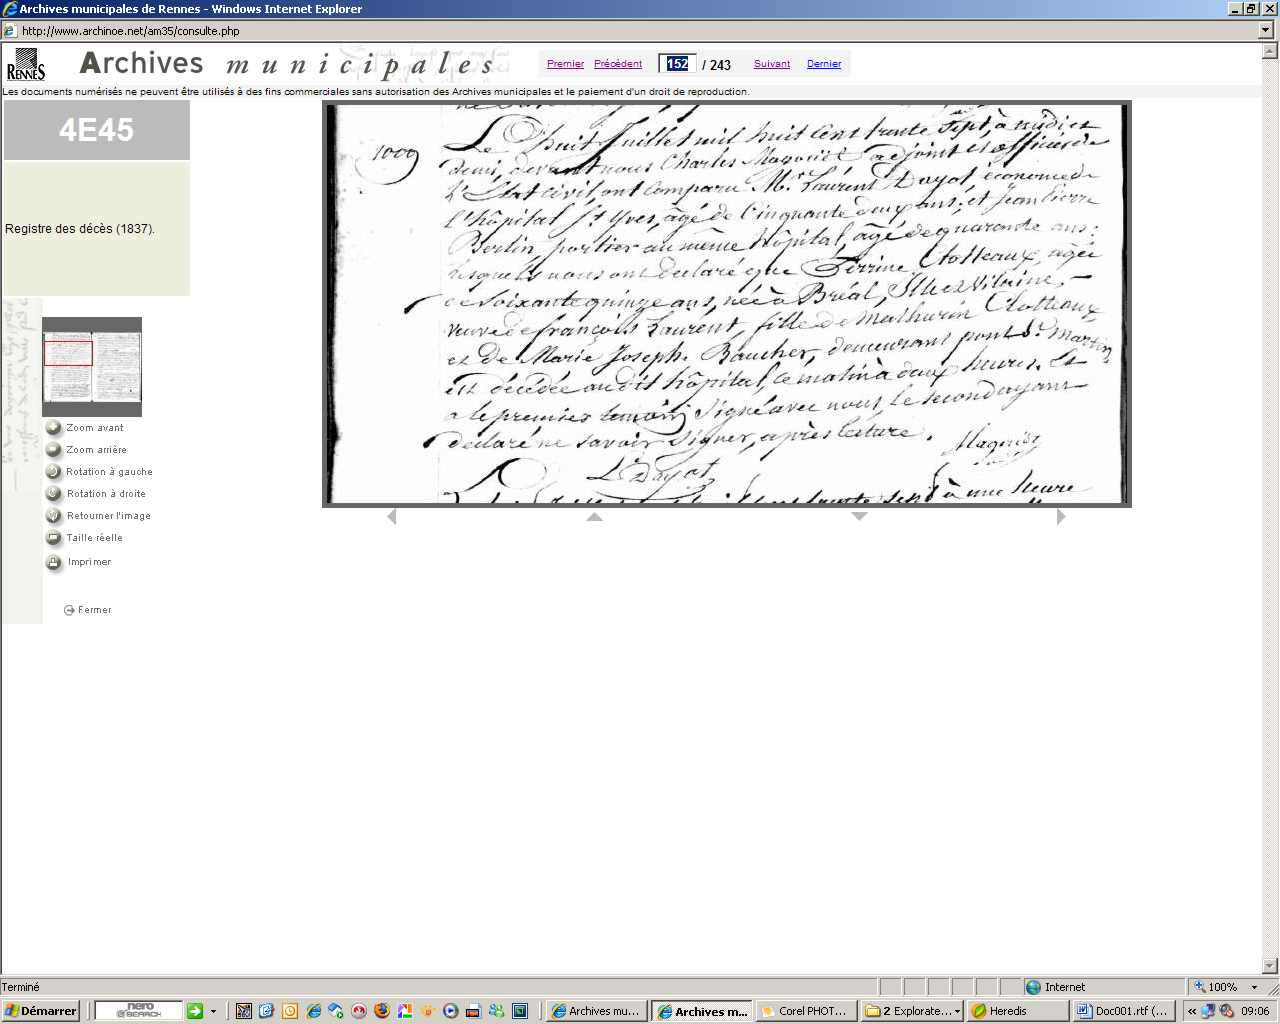 Archives municipales de Rennes - Windows Internet Explorer
http://www.archinoe.net/am35/consulte.php
RENNES
Archives municipales
Premier Précédent 152 / 243 Suivant Dernier
Les documents numérisés ne peuvent être utilisés à des fins commerciales sans autorisation des Archives municipales et le paiement d'un droit de reproduction.
4E45
Registre des décès (1837).
1009
Le huit Juillet mil huit cent trente sept, à midi et
demi, devant nous Charles adjoint et officier de
L'Etat civil, ont comparu Mr. Laurent Dayot, économe de
l'hôpital St. Yves, âgé de Cinquante deux ans; et Jean Pierre
Bertin, portier au même hôpital, âgé de quarante ans;
lesquels nous ont déclaré que Perrine Clotteaux, âgée
de soixante quinze ans, née à Bréal, Ille et Vilaine,
veuve de françois Laurent, fille de Mathurin Clotteaux
et de Marie Joseph. Baucher, demeurant pont St. Martin
est décédée audit hôpital, ce matin à deux heures. Et
a le premier témoin signé avec nous, le second ayant
déclaré ne savoir signer, après lecture.
L Dayot
à une heure
Zoom avant
Zoom arrière
Rotation à gauche
Rotation à droite
Retourner l'image
Taille réelle
Imprimer
Fermer
Terminé
Internet
100%
Démarrer
nero
SEARCH
Archives mu...
Archives m...
Corel PHOT...
2 Explorate...
Heredis
Doc001.rtf (...
«
09:06